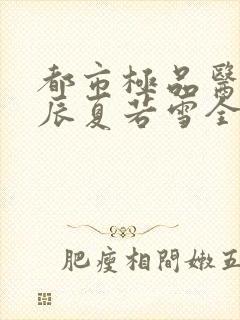 都市極品醫
辰夏若雪全
肥瘦相間嫩五